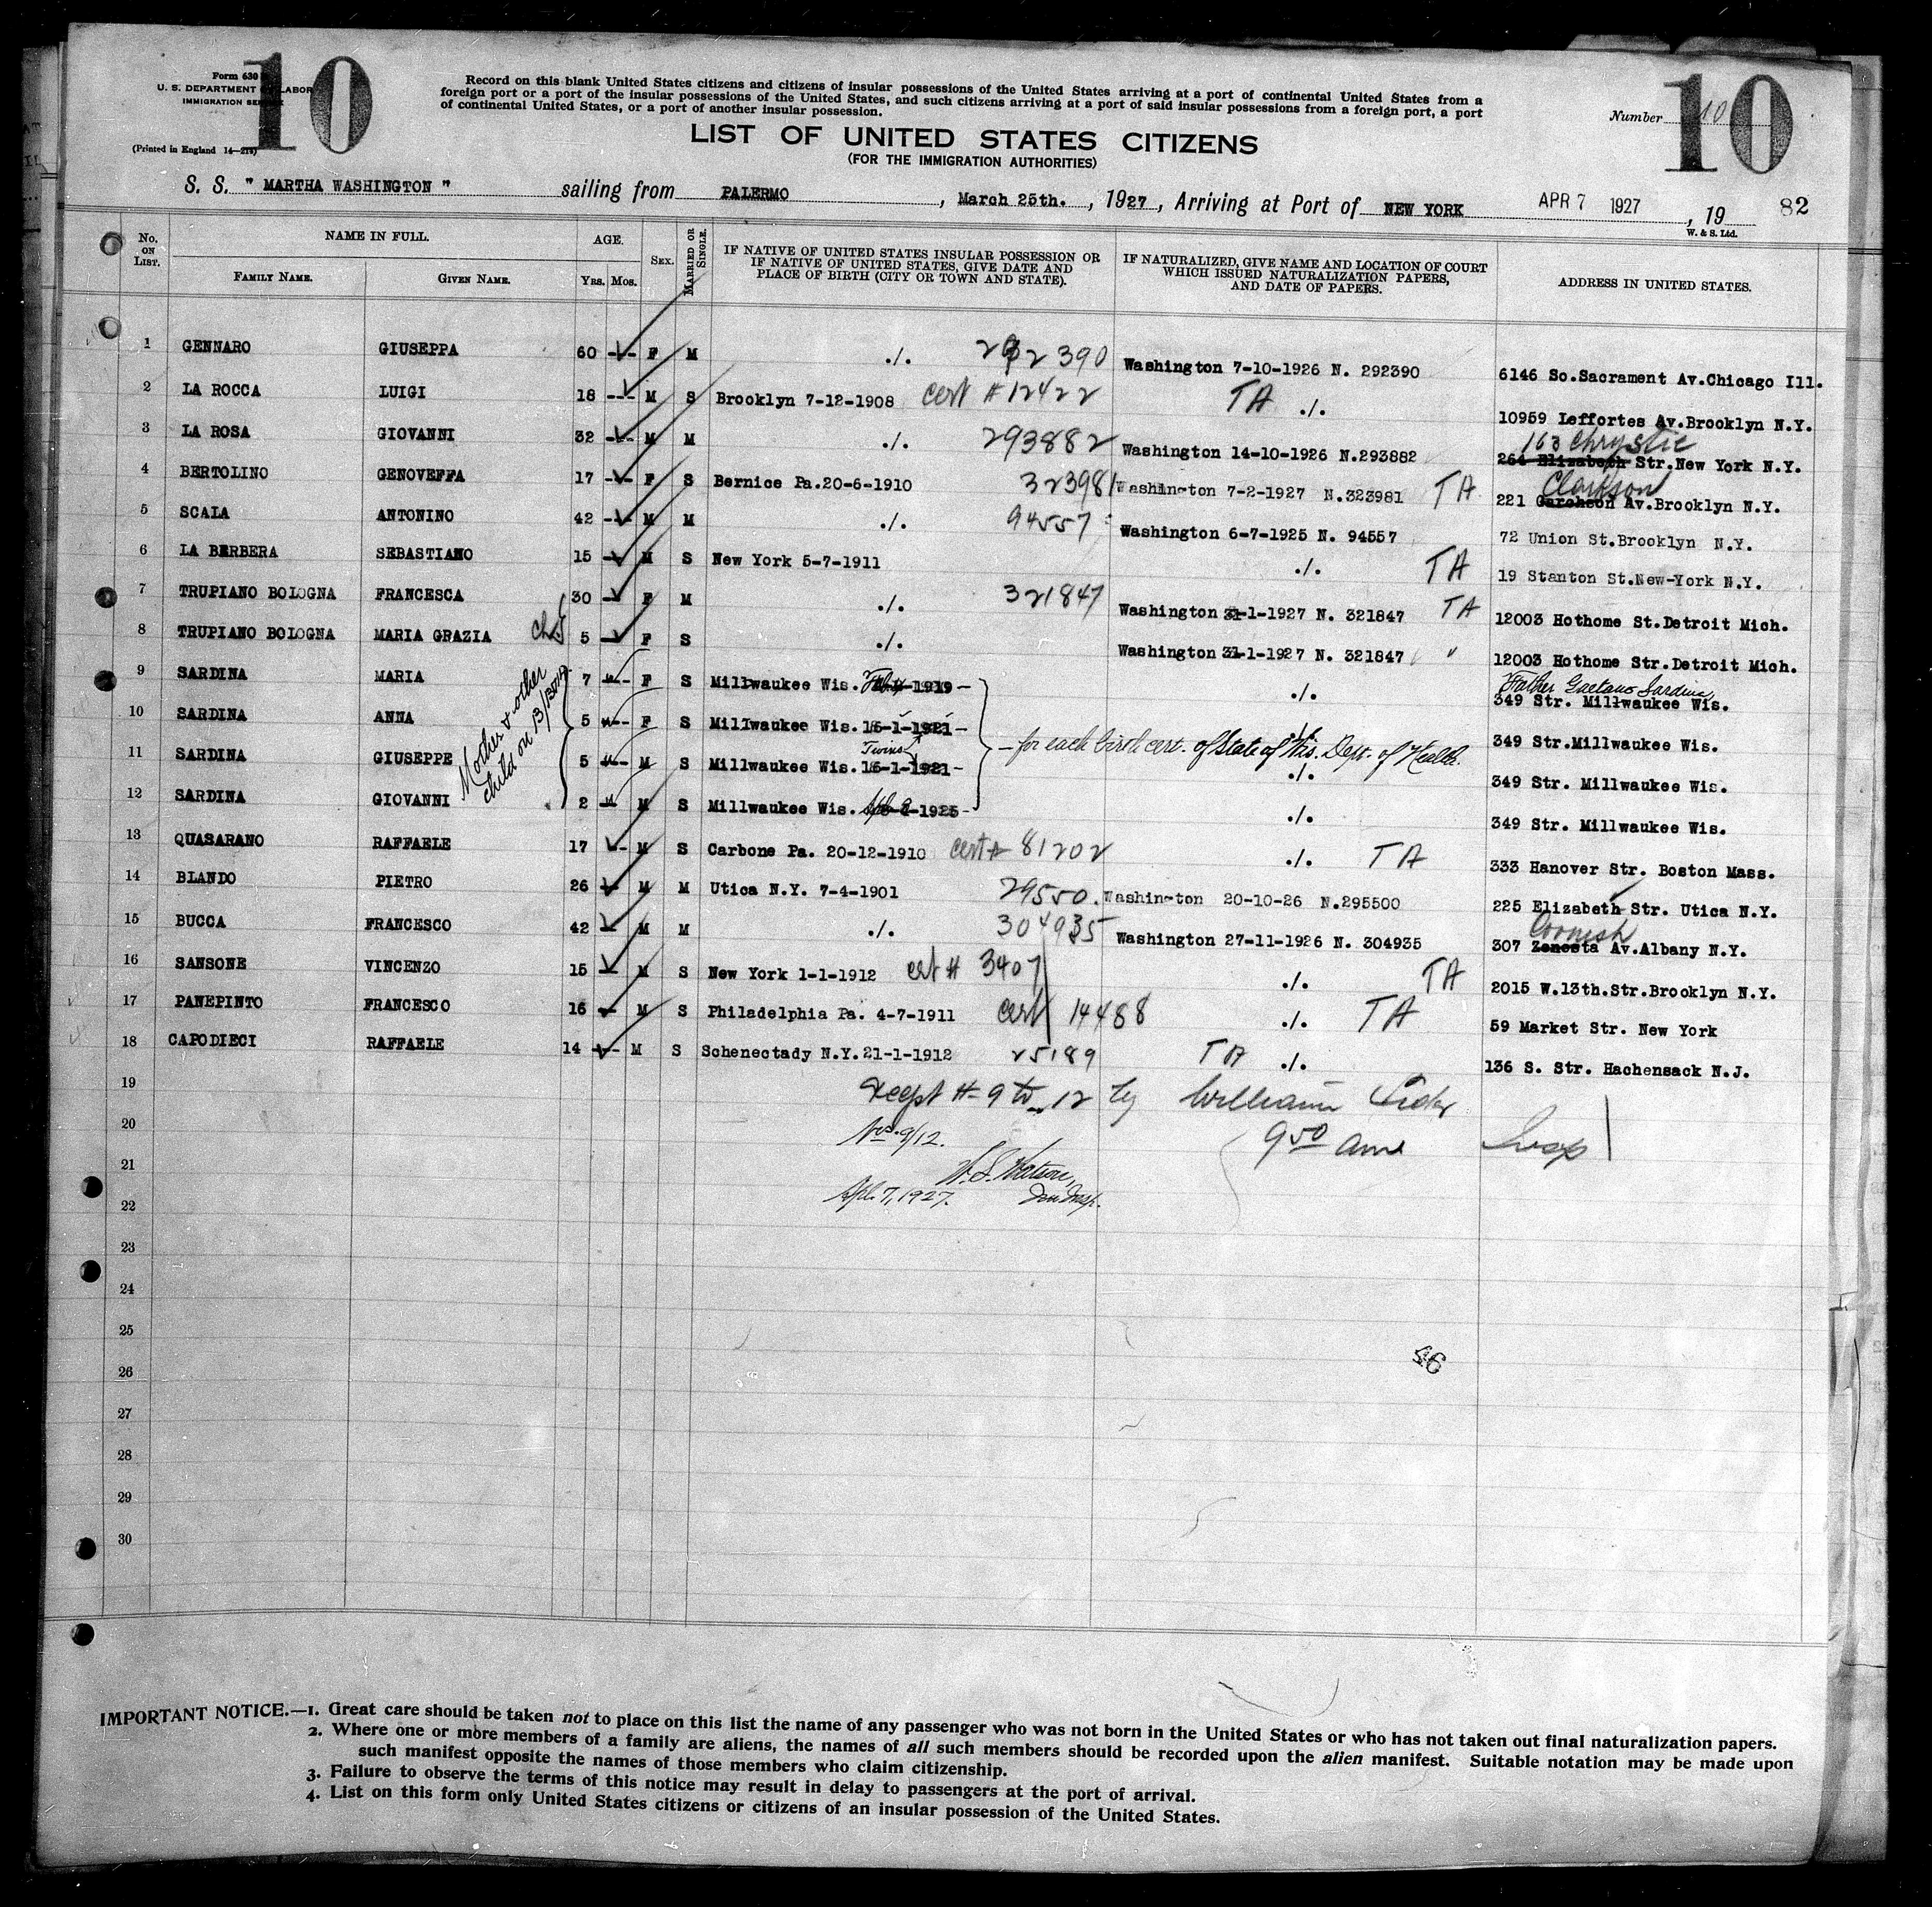 10
10
Form 630
U. S. DEPARTMENT OF LABOR
IMMIGRATION SERVICE
(Printed in England 14—219)
Record on this blank United States citizens and citizens of insular possessions of the United States arriving at a port of continental United States from a
foreign port or a port of the insular possessions of the United States, and such citizens arriving at a port of said insular possessions from a foreign port, a port
of continental United States, or a port of another insular possession.
Number 10
LIST OF UNITED STATES CITIZENS
(FOR THE IMMIGRATION AUTHORITIES)
S. S. " MARTHA WASHINGTON " sailing from PALERMO , March 25th. , 1927 , Arriving at Port of NEW YORK APR 7 1927 , 19 82
W. & S. Ltd.
No. ON LIST. NAME IN FULL. AGE. SEX. MARRIED OR SINGLE. IF NATIVE OF UNITED STATES INSULAR POSSESSION OR IF NATIVE OF UNITED STATES, GIVE DATE AND PLACE OF BIRTH (CITY OR TOWN AND STATE). IF NATURALIZED, GIVE NAME AND LOCATION OF COURT WHICH ISSUED NATURALIZATION PAPERS, AND DATE OF PAPERS. ADDRESS IN UNITED STATES.
FAMILY NAME. GIVEN NAME. Yrs. Mos.
1 GENNARO GIUSEPPA 60 -- F M ./. 292390 Washington 7-10-1926 N. 292390 6146 So.Sacrament Av.Chicago Ill.
2 LA ROCCA LUIGI 18 -- M S Brooklyn 7-12-1908 cert # 12422 TA ./. 10959 Leffortes Av.Brooklyn N.Y.
3 LA ROSA GIOVANNI 32 -- M M ./. 293882 Washington 14-10-1926 N.293882 163 Chrystie 264 Elizabeth Str.New York N.Y.
4 BERTOLINO GENOVEFFA 17 -- F S Bernice Pa.20-6-1910 323981 Washington 7-2-1927 N.323981 TA Clarkson 221 Garchson Av.Brooklyn N.Y.
5 SCALA ANTONINO 42 -- M M ./. 94557 Washington 6-7-1925 N. 94557 72 Union St.Brooklyn N.Y.
6 LA BERBERA SEBASTIANO 15 -- M S New York 5-7-1911 ./. TA 19 Stanton St.New-York N.Y.
7 TRUPIANO BOLOGNA FRANCESCA 30 -- F M ./. 321847 Washington 31-1-1927 N. 321847 TA 12003 Hothome St.Detroit Mich.
8 TRUPIANO BOLOGNA MARIA GRAZIA 5 -- F S ./. Washington 31-1-1927 N. 321847 " 12003 Hothome Str.Detroit Mich.
9 SARDINA MARIA 7 -- F S Millwaukee Wis. 1919 - ./. Father Gaetano Sardina 349 Str. Millwaukee Wis.
10 SARDINA ANNA 5 -- F S Millwaukee Wis. 15-1-1921 - ./. 349 Str.Millwaukee Wis.
Mother & other
child on 13/
Twins
- for each birth cert. of State of Wis. Dept. of Health.
11 SARDINA GIUSEPPE 5 -- M S Millwaukee Wis. 15-1-1921 - ./. 349 Str. Millwaukee Wis.
12 SARDINA GIOVANNI 2 -- M S Millwaukee Wis. 1925 - ./. 349 Str. Millwaukee Wis.
13 QUASARANO RAFFAELE 17 -- M S Carbone Pa. 20-12-1910 cert # 81202 ./. TA 333 Hanover Str. Boston Mass.
14 BLANDO PIETRO 26 -- M M Utica N.Y. 7-4-1901 29550. Washington 20-10-26 N.295500 225 Elizabeth Str. Utica N.Y.
15 BUCCA FRANCESCO 42 -- M M ./. 304935 Washington 27-11-1926 N. 304935 307 Zenesta Av.Albany N.Y.
16 SANSONE VINCENZO 15 -- M S New York 1-1-1912 cert # 3407 ./. TA 2015 W.13th.Str.Brooklyn N.Y.
17 PANEPINTO FRANCESCO 16 -- M S Philadelphia Pa. 4-7-1911 cert 14488 ./. TA 59 Market Str. New York
18 CAPODIECI RAFFAELE 14 -- M S Schenectady N.Y.21-1-1912 25189 TA ./. 136 S. Str. Hachensack N.J.
19 Except # 9 to 12 by William
20 Nos. 9/12. 9 50 am Insp
21 W. S. Watson,
22 Apl. 7, 1927. Imm Insp.
23
24
25
26 46
27
28
29
30
IMPORTANT NOTICE.—1. Great care should be taken not to place on this list the name of any passenger who was not born in the United States or who has not taken out final naturalization papers.
2. Where one or more members of a family are aliens, the names of all such members should be recorded upon the alien manifest. Suitable notation may be made upon
such manifest opposite the names of those members who claim citizenship.
3. Failure to observe the terms of this notice may result in delay to passengers at the port of arrival.
4. List on this form only United States citizens or citizens of an insular possession of the United States.